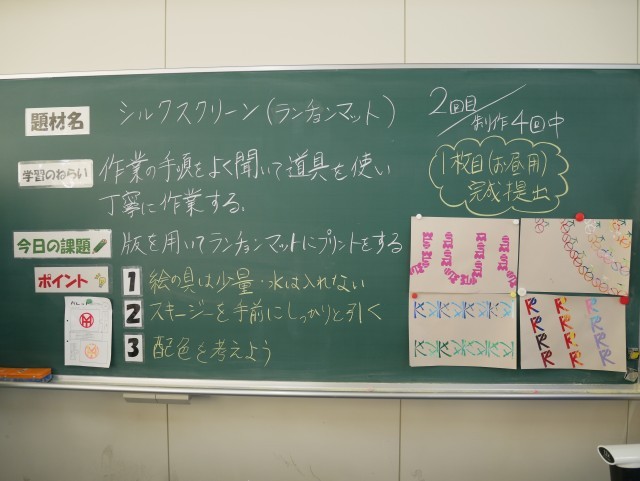 題材名
シルクスクリーン(ランチョンマット)
2回目/制作4回中
学習のねらい
作業の手順をよく聞いて道具を使い
丁寧に作業する。
1枚目(お昼用)
完成提出
今日の課題
版を用いてランチョンマットにプリントをする
ポイント
1 絵の具は少量・水は入れない
2 スキージーを手前にしっかりと引く
3 配色を考えよう